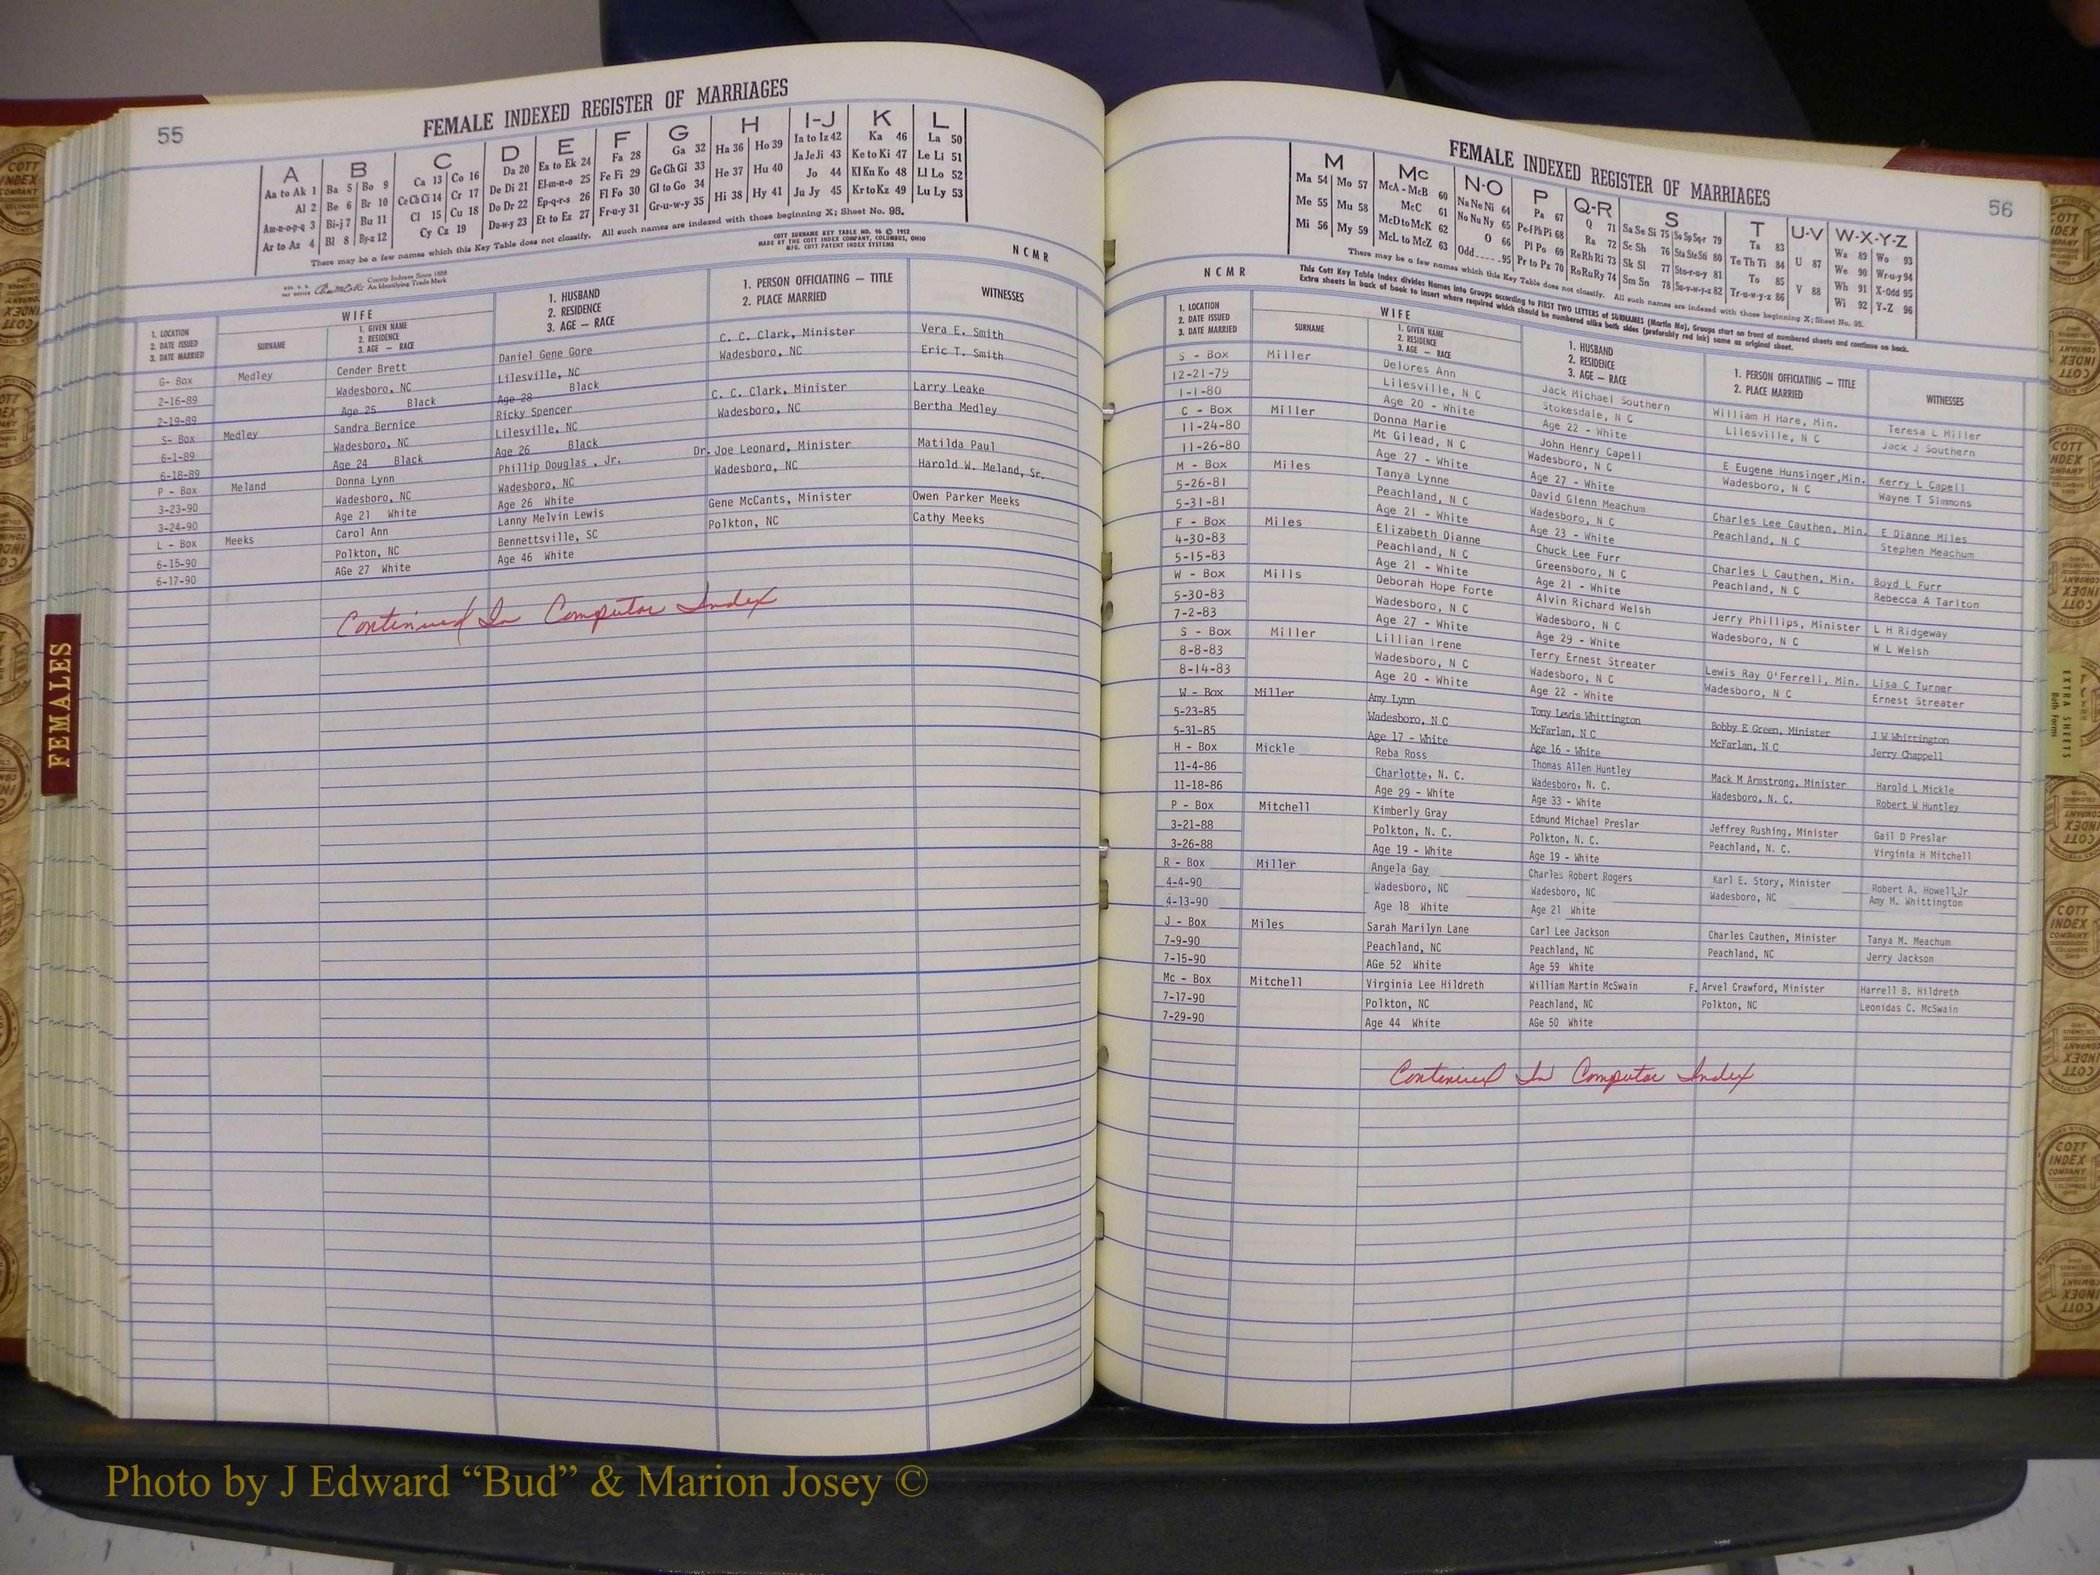 55
FEMALE INDEXED REGISTER OF MARRIAGES
A B C D E F G H I-J K L
Aa to Ak 1 Ba 5 Bo 9 Ca 13 Co 16 Da 20 Ea to Ek 24 Fa 28 Ga 32 Ha 36 Ho 39 Ia to Iz 42 Ka 46 La 50
Al 2 Be 6 Br 10 Ce Ch Ci 14 Cr 17 De Di 21 El-m-n-o 25 Fe Fi 29 Ge Gh Gi 33 He 37 Hu 40 Ja Je Ji 43 Ke to Ki 47 Le Li 51
Am-n-o-p-q 3 Bi-j 7 Bu 11 Cl 15 Cu 18 Do Dr 22 Ep-q-r-s 26 Fl Fo 30 Gl to Go 34 Hi 38 Hy 41 Jo 44 Kl Kn Ko 48 Ll Lo 52
Ar to Az 4 Bl 8 By-z 12 Cy Cz 19 Du-w-y 23 Et to Ez 27 Fr-u-y 31 Gr-u-w-y 35 Ju Jy 45 Kr to Kz 49 Lu Ly 53
There may be a few names which this Key Table does not classify. All such names are indexed with those beginning X; Sheet No. 95.
COTT SURNAME KEY TABLE NO. 96 © 1953
MADE BY THE COTT INDEX COMPANY, COLUMBUS, OHIO
MFG. COTT PATENT INDEX SYSTEMS
County Indexes Since 1888
An Identifying Trade Mark
NCMR
1. LOCATION
2. DATE ISSUED
3. DATE MARRIED
WIFE
SURNAME
1. GIVEN NAME
2. RESIDENCE
3. AGE — RACE
1. HUSBAND
2. RESIDENCE
3. AGE — RACE
1. PERSON OFFICIATING — TITLE
2. PLACE MARRIED
WITNESSES
G- Box Medley Cender Brett Daniel Gene Gore C. C. Clark, Minister Vera E. Smith
2-16-89 Wadesboro, NC Lilesville, NC Wadesboro, NC Eric T. Smith
2-19-89 Age 25 Black Age 28 Black
S- Box Medley Sandra Bernice Ricky Spencer C. C. Clark, Minister Larry Leake
6-1-89 Wadesboro, NC Lilesville, NC Wadesboro, NC Bertha Medley
6-18-89 Age 24 Black Age 26 Black
P - Box Meland Donna Lynn Phillip Douglas , Jr. Dr. Joe Leonard, Minister Matilda Paul
3-23-90 Wadesboro, NC Wadesboro, NC Wadesboro, NC Harold W. Meland, Sr.
3-24-90 Age 21 White Age 26 White
L - Box Meeks Carol Ann Lanny Melvin Lewis Gene McCants, Minister Owen Parker Meeks
6-15-90 Polkton, NC Bennettsville, SC Polkton, NC Cathy Meeks
6-17-90 AGe 27 White Age 46 White
Continued In Computer Index
FEMALES
56
FEMALE INDEXED REGISTER OF MARRIAGES
M Mc N-O P Q-R S T U-V W-X-Y-Z
Ma 54 Mo 57 McA - McB 60 Na Ne Ni 64 Pa 67 Q 71 Sa Se Si 75 So Sp Sq-r 79 Ta 83 U 87 Wa 89 Wo 93
Me 55 Mu 58 McC 61 No Nu Ny 65 Pe-f Ph Pi 68 Ra 72 Sc Sh 76 Sta Ste Sti 80 Te Th Ti 84 V 88 We 90 Wr-u-y 94
Mi 56 My 59 McD to McK 62 O 66 Pl Po 69 Re Rh Ri 73 Sk Sl 77 Sto-r-u-y 81 To 85 Wh 91 X-Odd 95
McL to McZ 63 Odd 95 Pr to Pz 70 Ro Ru Ry 74 Sm Sn 78 Su-v-w-y-z 82 Tr-u-w-y-z 86 Wi 92 Y-Z 96
There may be a few names which this Key Table does not classify. All such names are indexed with those beginning X; Sheet No. 95.
NCMR
This Cott Key Table Index divides Names into Groups according to FIRST TWO LETTERS of SURNAMES (Martin Ma), Groups start on front of numbered sheets and continue on back.
Extra sheets in back of book to insert where required which should be numbered alike both sides (preferably red ink) same as original sheet.
1. LOCATION
2. DATE ISSUED
3. DATE MARRIED
WIFE
SURNAME
1. GIVEN NAME
2. RESIDENCE
3. AGE — RACE
1. HUSBAND
2. RESIDENCE
3. AGE — RACE
1. PERSON OFFICIATING — TITLE
2. PLACE MARRIED
WITNESSES
S - Box Miller Delores Ann Jack Michael Southern William H Hare, Min. Teresa L Miller
12-21-79 Lilesville, N C Stokesdale, N C Lilesville, N C Jack J Southern
1-1-80 Age 20 - White Age 22 - White
C - Box Miller Donna Marie John Henry Capell E Eugene Hunsinger,Min. Kerry L Capell
11-24-80 Mt Gilead, N C Wadesboro, N C Wadesboro, N C Wayne T Simmons
11-26-80 Age 27 - White Age 27 - White
M - Box Miles Tanya Lynne David Glenn Meachum Charles Lee Cauthen, Min. E Dianne Miles
5-26-81 Peachland, N C Wadesboro, N C Peachland, N C Stephen Meachum
5-31-81 Age 21 - White Age 23 - White
F - Box Miles Elizabeth Dianne Chuck Lee Furr Charles L Cauthen, Min. Boyd L Furr
4-30-83 Peachland, N C Greensboro, N C Peachland, N C Rebecca A Tarlton
5-15-83 Age 21 - White Age 21 - White
W - Box Mills Deborah Hope Forte Alvin Richard Welsh Jerry Phillips, Minister L H Ridgeway
5-30-83 Wadesboro, N C Wadesboro, N C Wadesboro, N C W L Welsh
7-2-83 Age 27 - White Age 29 - White
S - Box Miller Lillian Irene Terry Ernest Streater Lewis Ray O'Ferrell, Min. Lisa C Turner
8-8-83 Wadesboro, N C Wadesboro, N C Wadesboro, N C Ernest Streater
8-14-83 Age 20 - White Age 22 - White
W - Box Miller Amy Lynn Tony Lewis Whittington Bobby E Green, Minister J W Whittington
5-23-85 Wadesboro, N C McFarlan, N C McFarlan, N C Jerry Chappell
5-31-85 Age 17 - White Age 16 - White
H - Box Mickle Reba Ross Thomas Allen Huntley Mack M Armstrong, Minister Harold L Mickle
11-4-86 Charlotte, N. C. Wadesboro, N. C. Wadesboro, N. C. Robert W Huntley
11-18-86 Age 29 - White Age 33 - White
P - Box Mitchell Kimberly Gray Edmund Michael Preslar Jeffrey Rushing, Minister Gail D Preslar
3-21-88 Polkton, N. C. Polkton, N. C. Peachland, N. C. Virginia H Mitchell
3-26-88 Age 19 - White Age 19 - White
R - Box Miller Angela Gay Charles Robert Rogers Karl E. Story, Minister Robert A. Howell,Jr
4-4-90 Wadesboro, NC Wadesboro, NC Wadesboro, NC Amy M. Whittington
4-13-90 Age 18 White Age 21 White
J - Box Miles Sarah Marilyn Lane Carl Lee Jackson Charles Cauthen, Minister Tanya M. Meachum
7-9-90 Peachland, NC Peachland, NC Peachland, NC Jerry Jackson
7-15-90 AGe 52 White Age 59 White
Mc - Box Mitchell Virginia Lee Hildreth William Martin McSwain F. Arvel Crawford, Minister Harrell B. Hildreth
7-17-90 Polkton, NC Peachland, NC Polkton, NC Leonidas C. McSwain
7-29-90 Age 44 White AGe 50 White
Continued In Computer Index
EXTRA SHEETS
Both Forms
COTT
INDEX
COMPANY
COLUMBUS
OHIO
Photo by J Edward “Bud” & Marion Josey ©